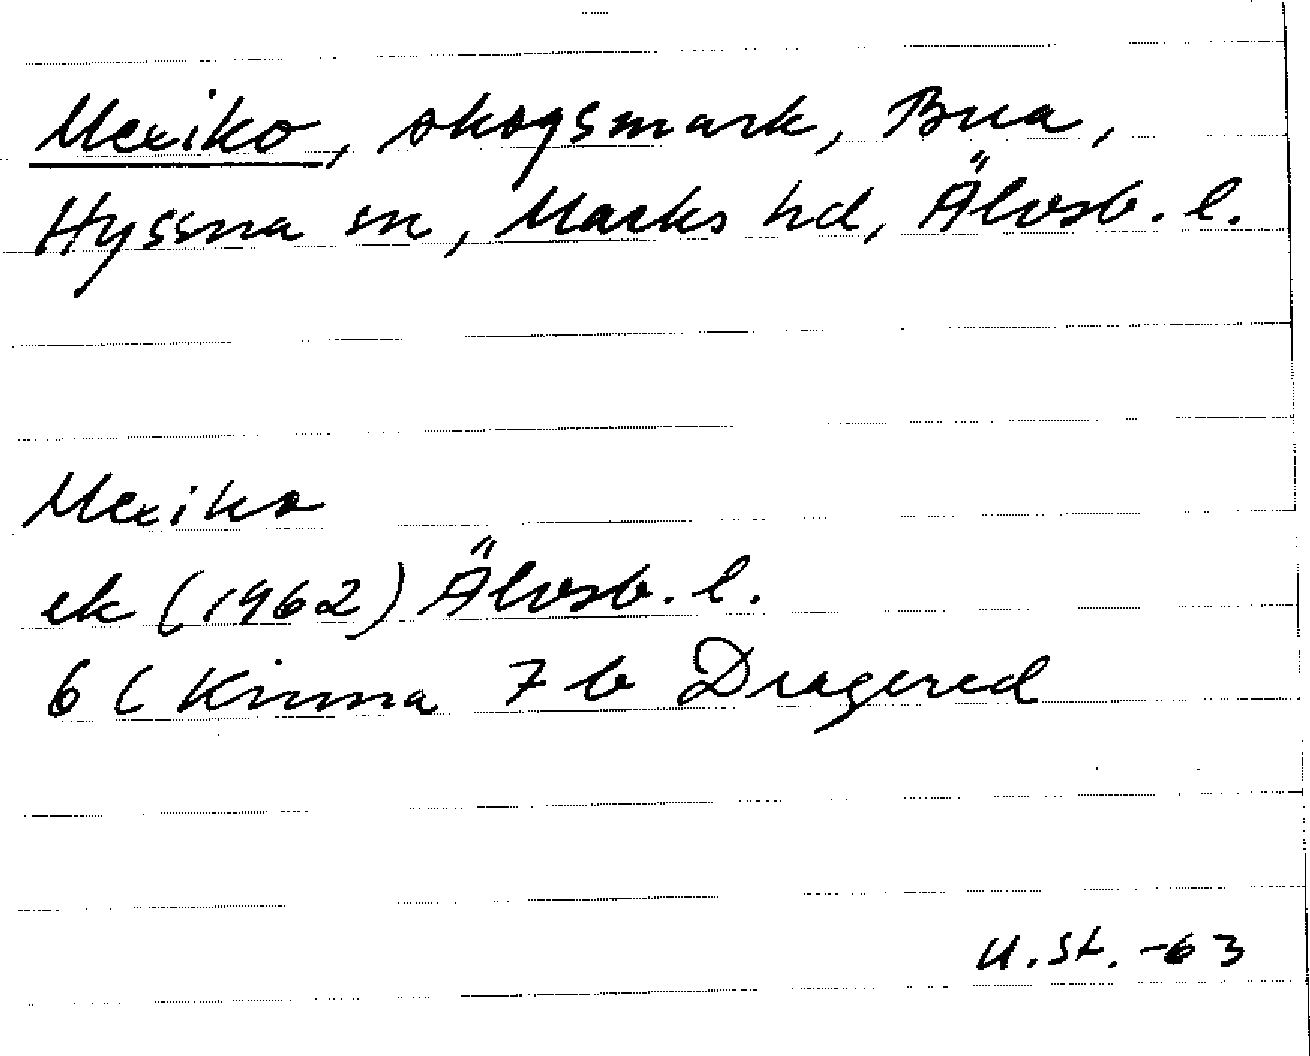 Mexiko, skogsmark, Bua,
Hyssna sn, Marks hd, Älvsb. l.
Mexiko
ek (1962) Älvsb. l.
6 C Kinna 7 b Dragered
U. St. -63